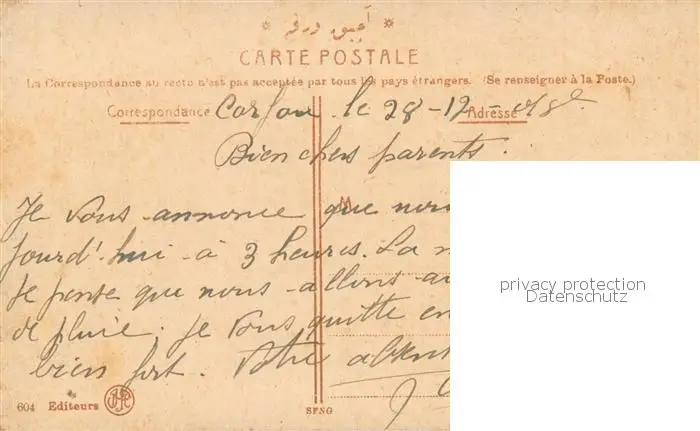 CARTE POSTALE
La Correspondance au recto n'est pas acceptée par tous les pays étrangers. (Se renseigner à la Poste.)
Correspondance Adresse
Corfou le 28-12-
Bien chers parents.
Je vous annonce que nous
M
jourd'hui à 3 heures. La
Je pense que nous allons au
de pluie. Je vous quitte en
bien fort. Votre
604 Editeurs
SFNG
privacy protection
Datenschutz